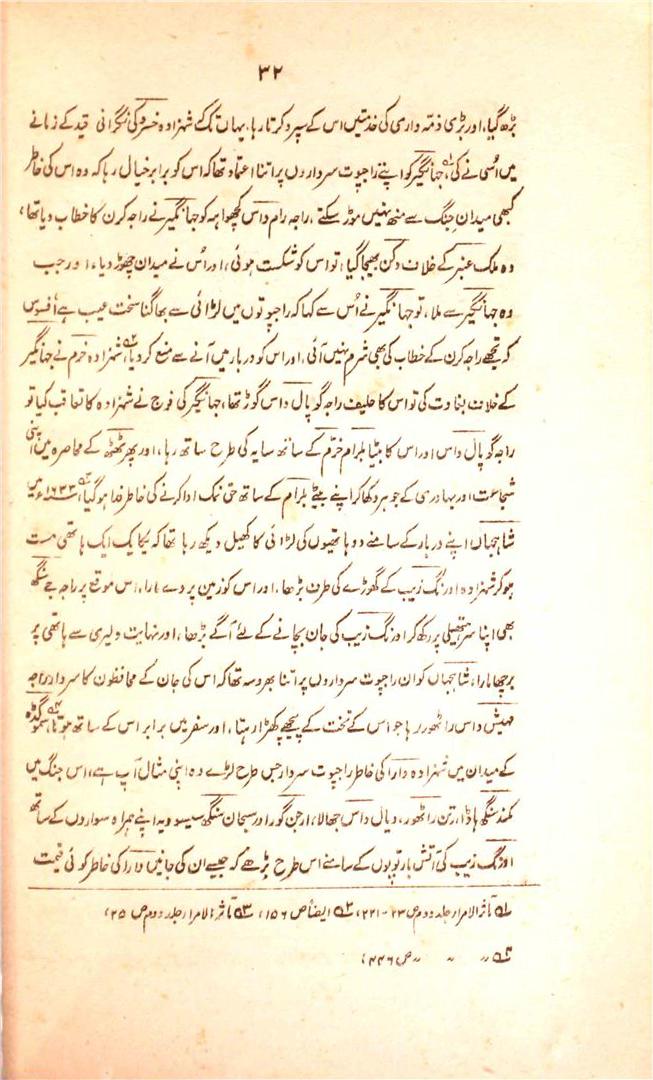 ۳۲
بڑھ گیا، اور بڑی ذمہ داری کی خدمتیں اس کے سپرد کرتا رہا، یہاں تک کہ شہزادہ خسرو کی نگرانی قید کے زمانے
میں اُسی نے کی، جہانگیر کو اپنے راجپوت سرداروں پر اتنا اعتماد تھا کہ اس کو برابر خیال رہا کہ وہ اس کی خاطر
کبھی میدانِ جنگ سے منھ نہیں موڑ سکتے، راجہ رام داس کچھواہہ کو جہانگیر نے راجہ کرن کا خطاب دیا تھا،
وہ ملک عنبر کے خلاف دکن بھیجا گیا، تو اس کو شکست ہوئی، اور اُس نے میدان چھوڑ دیا، اور جب
وہ جہانگیر سے ملا، تو جہانگیر نے اُس سے کہا کہ راجپوتوں میں لڑائی سے بھاگنا سخت عیب ہے، افسوس
کہ تجھے راجہ کرن کے خطاب کی بھی شرم نہیں آئی، اور اس کو دربار میں آنے سے منع کر دیا، شہزادہ خرم نے جہانگیر
کے خلاف بغاوت کی تو اس کا حلیف راجہ گوپال داس گوڑ تھا، جہانگیر کی فوج نے شہزادہ کا تعاقب کیا تو
راجہ گوپال داس اور اس کا بیٹا بلرام خرم کے ساتھ سایہ کی طرح ساتھ رہا، اور پھر ٹھٹھ کے محاصرہ میں اپنی
شجاعت اور بہادری کے جوہر دکھا کر اپنے بیٹے بلرام کے ساتھ حق نمک ادا کرنے کی خاطر فدا ہو گیا، ۱۶۳۳ء میں
شاہجہاں اپنے دربار کے سامنے دو ہاتھیوں کی لڑائی کا کھیل دیکھ رہا تھا کہ یکایک ایک ہاتھی مست
ہو کر شہزادہ اورنگ زیب کے گھوڑے کی طرف بڑھا، اور اس کو زمین پر دے مارا، اس موقع پر راجہ جے سنگھ
بھی اپنا سر ہتھیلی پر رکھ کر اورنگ زیب کی جان بچانے کے لئے آگے بڑھا، اور نہایت دلیری سے ہاتھی پر
برچھا مارا، شاہجہاں کو ان راجپوت سرداروں پر اتنا بھروسہ تھا کہ اس کی جان کے محافظوں کا سردار راجہ
مہیش داس راٹھور رہا جو اس کے تخت کے پیچھے کھڑا رہتا، اور سفر میں برابر اس کے ساتھ ہوتا، سموگڈھ
کے میدان میں شہزادہ دارا کی خاطر راجپوت سردار جس طرح لڑے وہ اپنی مثال آپ ہے، اس جنگ میں
مکند سنگھ ہاڈا، رتن راٹھور، دیال داس جھالا، ارجن گور اور سبحان سنگھ سیسودیہ اپنے ہمراہ سواروں کے ساتھ
اورنگ زیب کی آتش بار توپوں کے سامنے اس طرح بڑھے کہ جیسے ان کی جانیں دارا کی خاطر کوئی قیمت
۱؎ مآثر الامرار جلد دوم ص ۲۳-۲۲۱، ۲؎ ایضاً ص ۱۵۶، ۳؎ مآثر الامرار جلد دوم ص ۲۵،
۴؎ ״ ״ ״ ص ۴۴۶،